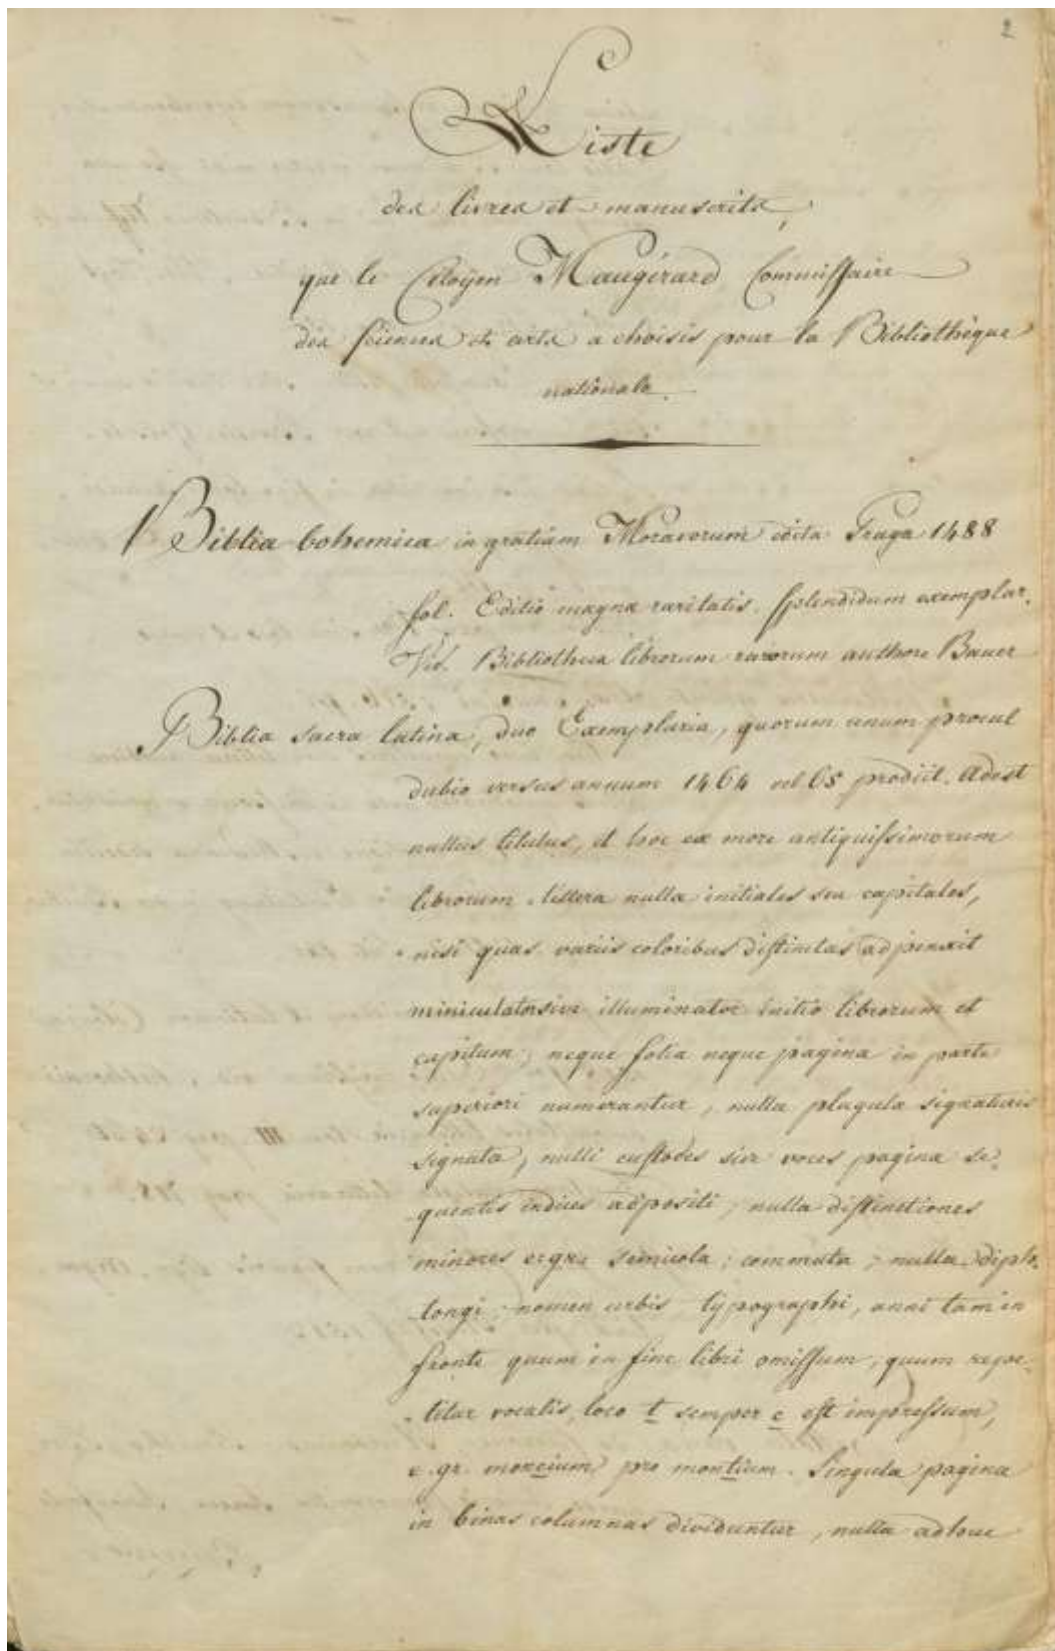 2
Liste
des livres et manuscrits,
que le Citoÿen Maugérard Commissaire
des sciences et arts a choisis pour la Bibliothèque
nationale.
Biblia bohemica in gratiam Moravorum edita Praga 1488
fol. Editio magnæ raritatis. Splendidum exemplar.
Vid. Bibliotheca librorum rariorum authore Bauer
Biblia sacra latina, duo Exemplaria, quorum unum procul
dubio versus annum 1464 vel 65 prodiit. Adest
nullus titulus, et hoc ex more antiquissimorum
librorum. littera nulla initiales seu capitales,
nisi quas variis coloribus distinctas adpinxit
miniculator sive illuminator initio librorum et
capitum; neque folia neque pagina in parte
superiori numerantur, nulla plagula signaturis
signata, nulli custodes sive voces pagina se-
quentis indices adpositi; nulla distinctiones
minores e. gr. semicola; commata; nulla diph-
tongi; nomen urbis typographi, anni tam in
fronte quam in fine libri omissum, quum repe-
titur vocalis, loco t semper c est impressum,
e. gr. moncium pro montium. Singula pagina
in binas columnas dividuntur, nulla adhuc